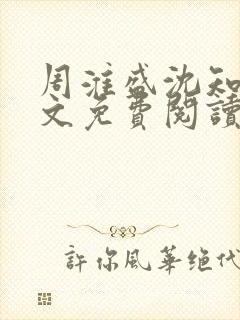 周淮盛沈知
文免費閱讀
許你風華绝代